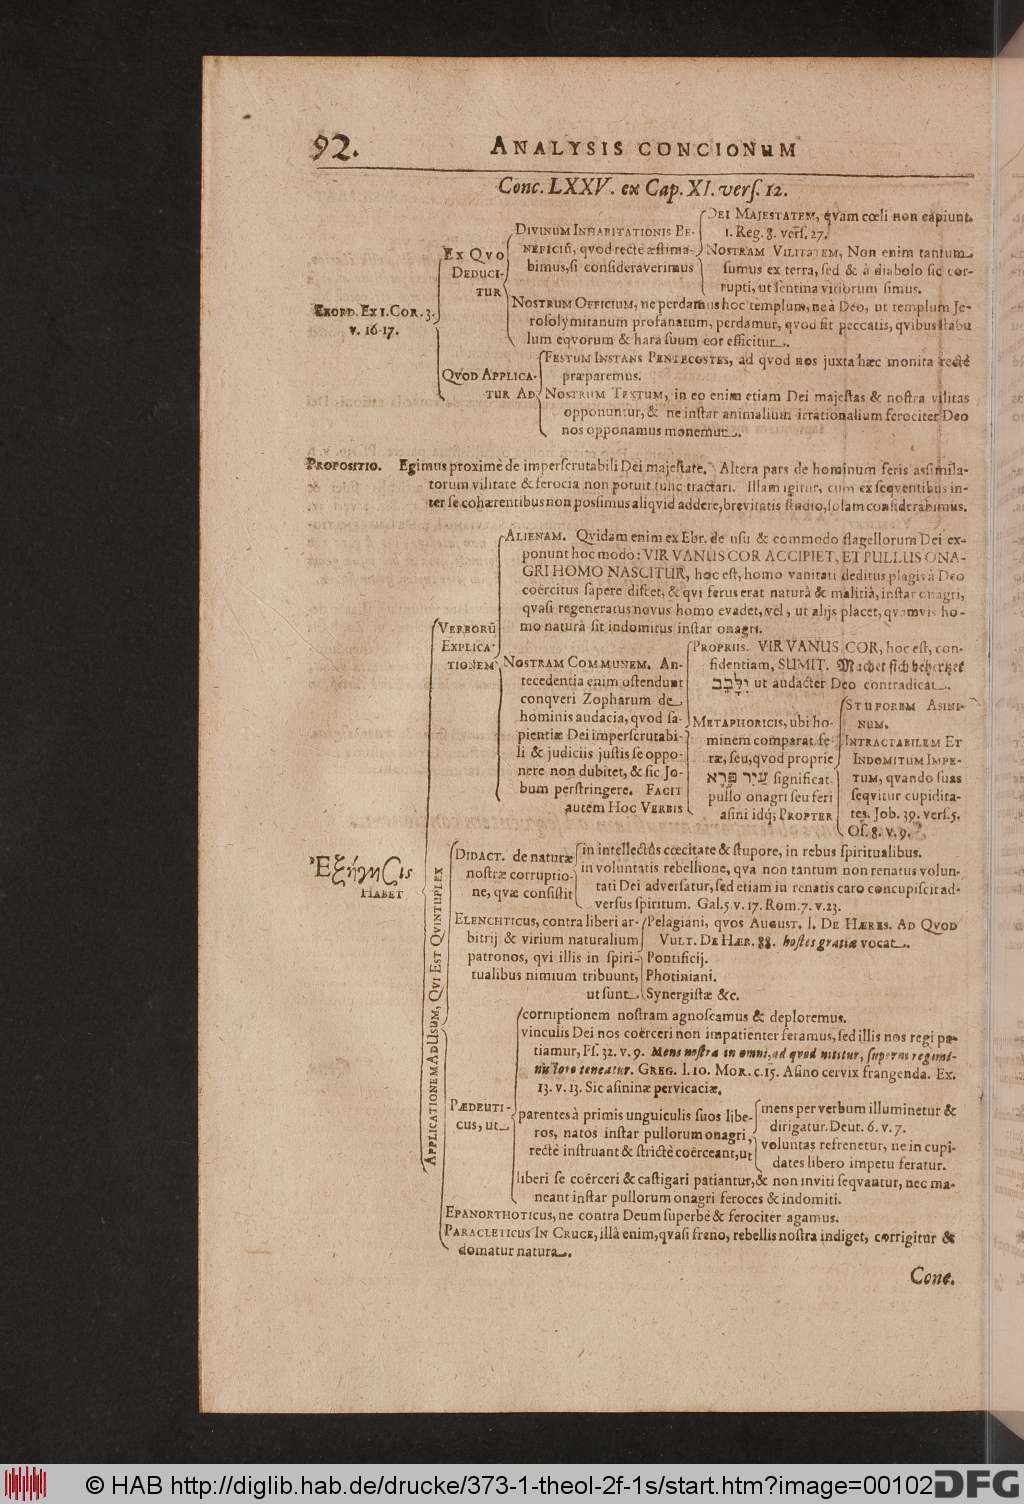 92.
ANALYSIS CONCIONUM
Conc. LXXV. ex Cap. XI. verſ. 12.
EXORD. EX I. COR. 3.
v. 16-17.
EX QVO
DEDUCI-
TUR
DIVINUM INHABITATIONIS BE-
NEFICIŨ, qvod rectè æſtima-
bimus, ſi conſideraverimus
DEI MAJESTATEM, qvam cœli non capiunt.
1. Reg. 8. verſ. 27.
NOSTRAM VILITATEM, Non enim tantum
ſumus ex terra, ſed & à diabolo ſic cor-
rupti, ut ſentina vitiorum ſimus.
NOSTRUM OFFICIUM, ne perdamus hoc templum, ne à Deo, ut templum Je-
roſolymitanum profanatum, perdamur, qvod fit peccatis, qvibus ſtabu
lum eqvorum & hara ſuum cor efficitur.
QVOD APPLICA-
TUR AD
FESTUM INSTANS PENTECOSTES, ad qvod nos juxta hæc monita rectè
præparemus.
NOSTRUM TEXTUM, in eo enim etiam Dei majeſtas & noſtra vilitas
opponuntur, & ne inſtar animalium irrationalium ferociter Deo
nos opponamus monemur.
PROPOSITIO. Egimus proximè de imperſcrutabili Dei majeſtate. Altera pars de hominum feris aſſimila-
torum vilitate & ferocia non potuit tunc tractari. Illam igitur, cum ex ſeqventibus in-
ter ſe cohærentibus non poſſimus aliqvid addere, brevitatis ſtudio, ſolam conſiderabimus.
Ἐξήγησις
HABET
VERBORŨ
EXPLICA-
TIONEM
ALIENAM. Qvidam enim ex Ebr. de uſu & commodo flagellorum Dei ex-
ponunt hoc modo: VIR VANUS COR ACCIPIET, ET PULLUS ONA-
GRI HOMO NASCITUR, hoc eſt, homo vanitati deditus plagis à Deo
coërcitus ſapere diſcet, & qvi ferus erat naturâ & malitiâ, inſtar onagri,
qvaſi regeneratus novus homo evadet, vel, ut alijs placet, qvamvis ho-
mo naturâ ſit indomitus inſtar onagri.
NOSTRAM COMMUNEM. An-
tecedentia enim oſtendunt
conqveri Zopharum de
hominis audacia, qvod ſa-
pientiæ Dei imperſcrutabi-
li & judiciis juſtis ſe oppo-
nere non dubitet, & ſic Jo-
bum perſtringere. FACIT
autem HOC VERBIS
PROPRIIS. VIR VANUS COR, hoc eſt, con-
fidentiam, SUMIT. Machet ſich behertzet
יִלָּבֵב ut audacter Deo contradicat.
METAPHORICIS, ubi ho-
minem comparat fe-
ræ, ſeu, qvod proprie
עַיִר פֶּרֶא ſignificat
pullo onagri ſeu feri
aſini idq; PROPTER
STUPOREM ASINI-
NUM.
INTRACTABILEM ET
INDOMITUM IMPE-
TUM, qvando ſuas
ſeqvitur cupidita-
tes. Job. 39. verſ. 5.
Oſ. 8. v. 9.
APPLICATIONEM AD USUM, QVI EST QVINTUPLEX
DIDACT. de naturæ
noſtræ corruptio-
ne, qvæ conſiſtit
in intellectûs cœcitate & ſtupore, in rebus ſpiritualibus.
in voluntatis rebellione, qva non tantum non renatus volun-
tati Dei adverſatur, ſed etiam in renatis caro concupiſcit ad-
verſus ſpiritum. Gal. 5. v. 17. Rom. 7. v. 23.
ELENCHTICUS, contra liberi ar-
bitrij & virium naturalium
patronos, qvi illis in ſpiri-
tualibus nimium tribuunt,
ut ſunt
Pelagiani, qvos AUGUST. l. DE HÆRES. AD QVOD
VULT. DE HÆR. 88. hoſtes gratiæ vocat.
Pontificij.
Photiniani.
Synergiſtæ &c.
PÆDEUTI-
CUS, ut
corruptionem noſtram agnoſcamus & deploremus.
vinculis Dei nos coërceri non impatienter feramus, ſed illis nos regi pa-
tiamur, Pſ. 32. v. 9. Mens noſtra in omni, ad qvod nititur, ſuperni regimi-
nis loro teneatur. GREG. l. 10. MOR. c. 15. Aſino cervix frangenda. Ex.
13. v. 13. Sic aſininæ pervicaciæ.
parentes à primis unguiculis ſuos libe-
ros, natos inſtar pullorum onagri,
rectè inſtruant & ſtrictè coërceant, ut
mens per verbum illuminetur &
dirigatur. Deut. 6. v. 7.
voluntas refrenetur, ne in cupi-
dates libero impetu feratur.
liberi ſe coërceri & caſtigari patiantur, & non inviti ſeqvantur, nec ma-
neant inſtar pullorum onagri feroces & indomiti.
EPANORTHOTICUS, ne contra Deum ſuperbè & ferociter agamus.
PARACLETICUS IN CRUCE, illâ enim, qvaſi freno, rebellis noſtra indiget, corrigitur &
domatur natura.
Conc.
© HAB http://diglib.hab.de/drucke/373-1-theol-2f-1s/start.htm?image=00102
DFG